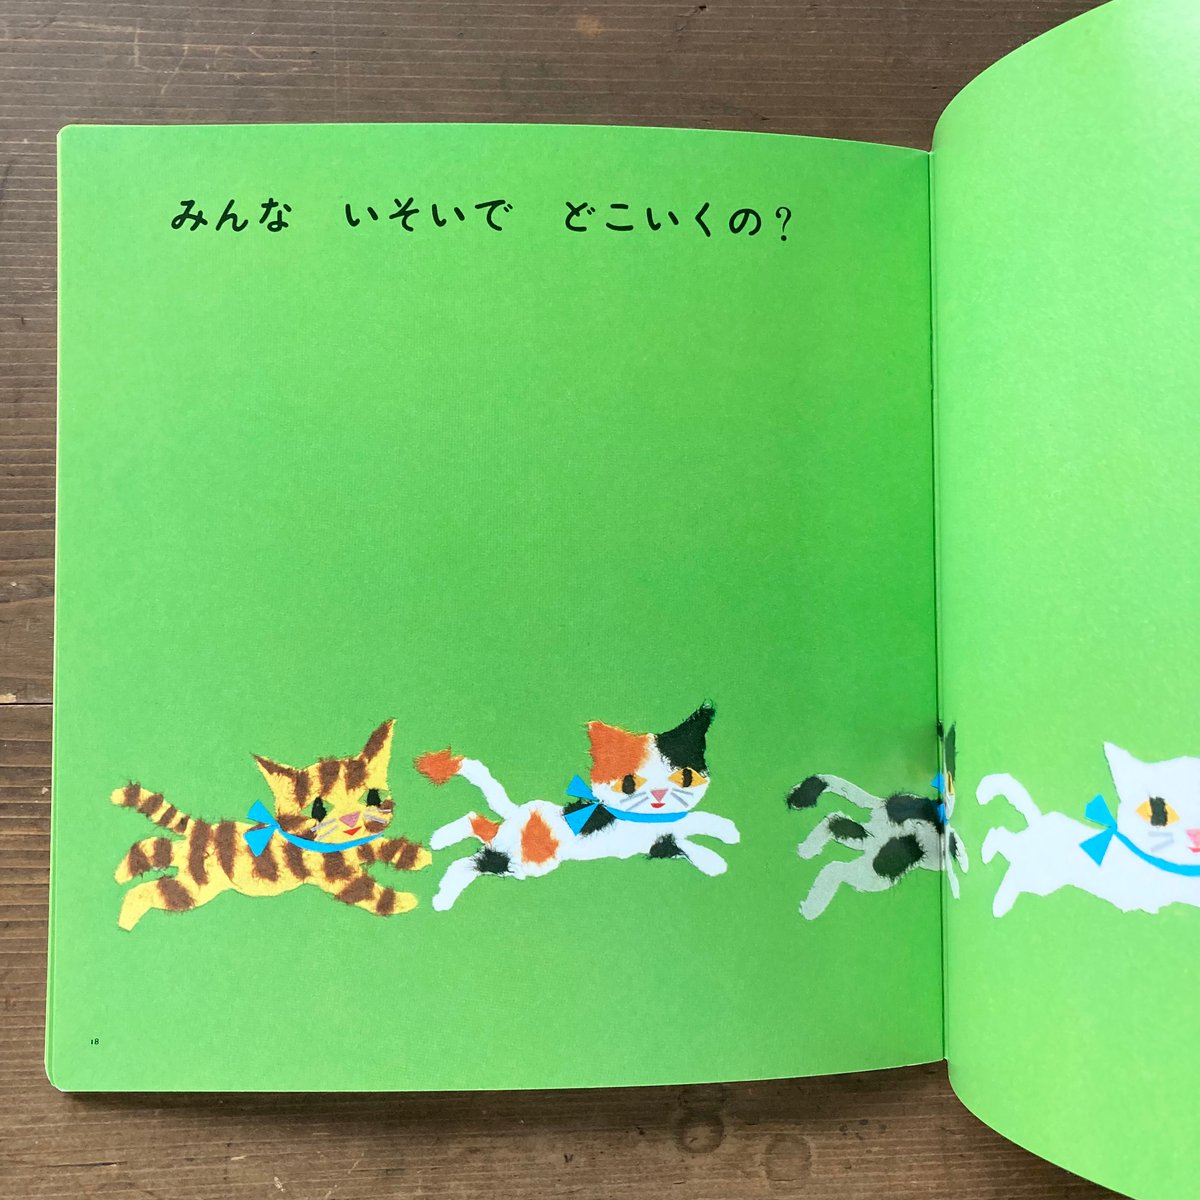 みんな　いそいで　どこいくの?
18